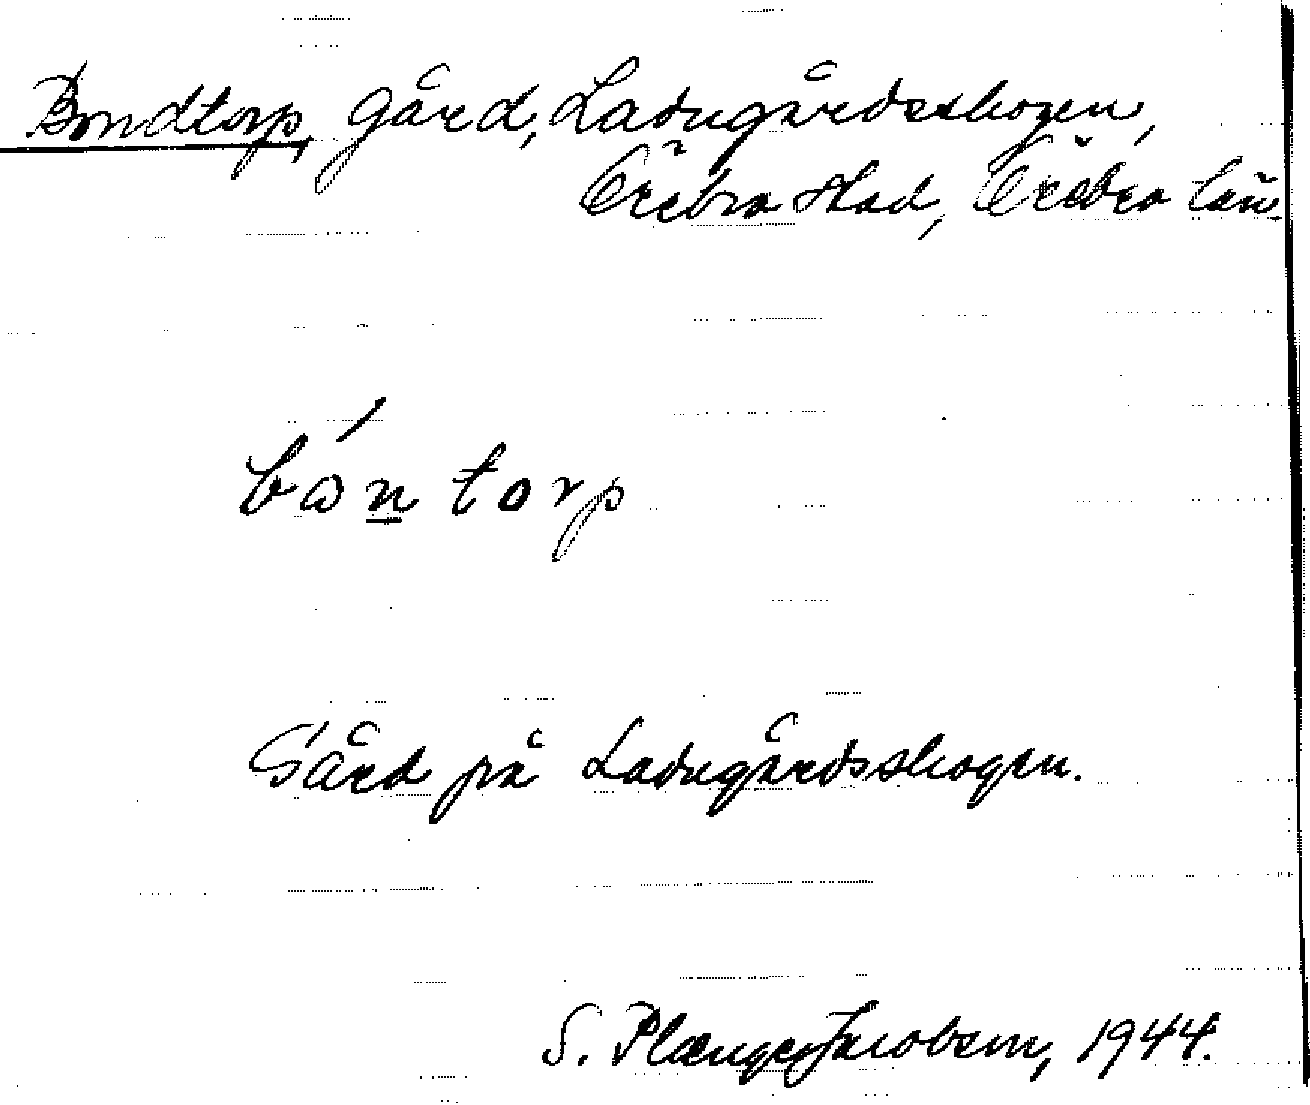 Bondtorp, gård, Ladugårdsskogen,
Örebro stad, Örebro län.
bón torp
Gård på Ladugårdsskogen.
S. Plænge Jacobson, 1944.